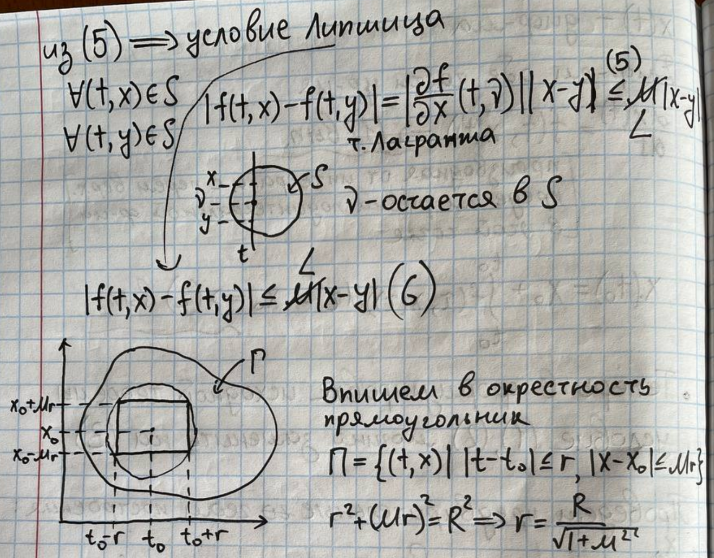 из (5) ⟹ условие Липшица
∀(t,x)∈S
∀(t,y)∈S
|f(t,x)-f(t,y)|=|∂f/∂x (t,ν)||x-y| ≤ M|x-y|
(5)
L
т. Лагранжа
x
ν
y
t
S
ν-остается в S
L
|f(t,x)-f(t,y)| ≤ M|x-y| (6)
Γ
x₀+Mr
x₀
x₀-Mr
t₀-r t₀ t₀+r
Впишем в окрестность
прямоугольник
П={(t,x)| |t-t₀|≤r, |x-x₀|≤Mr}
r²+(Mr)²=R² ⟹ r= R/√(1+M²)